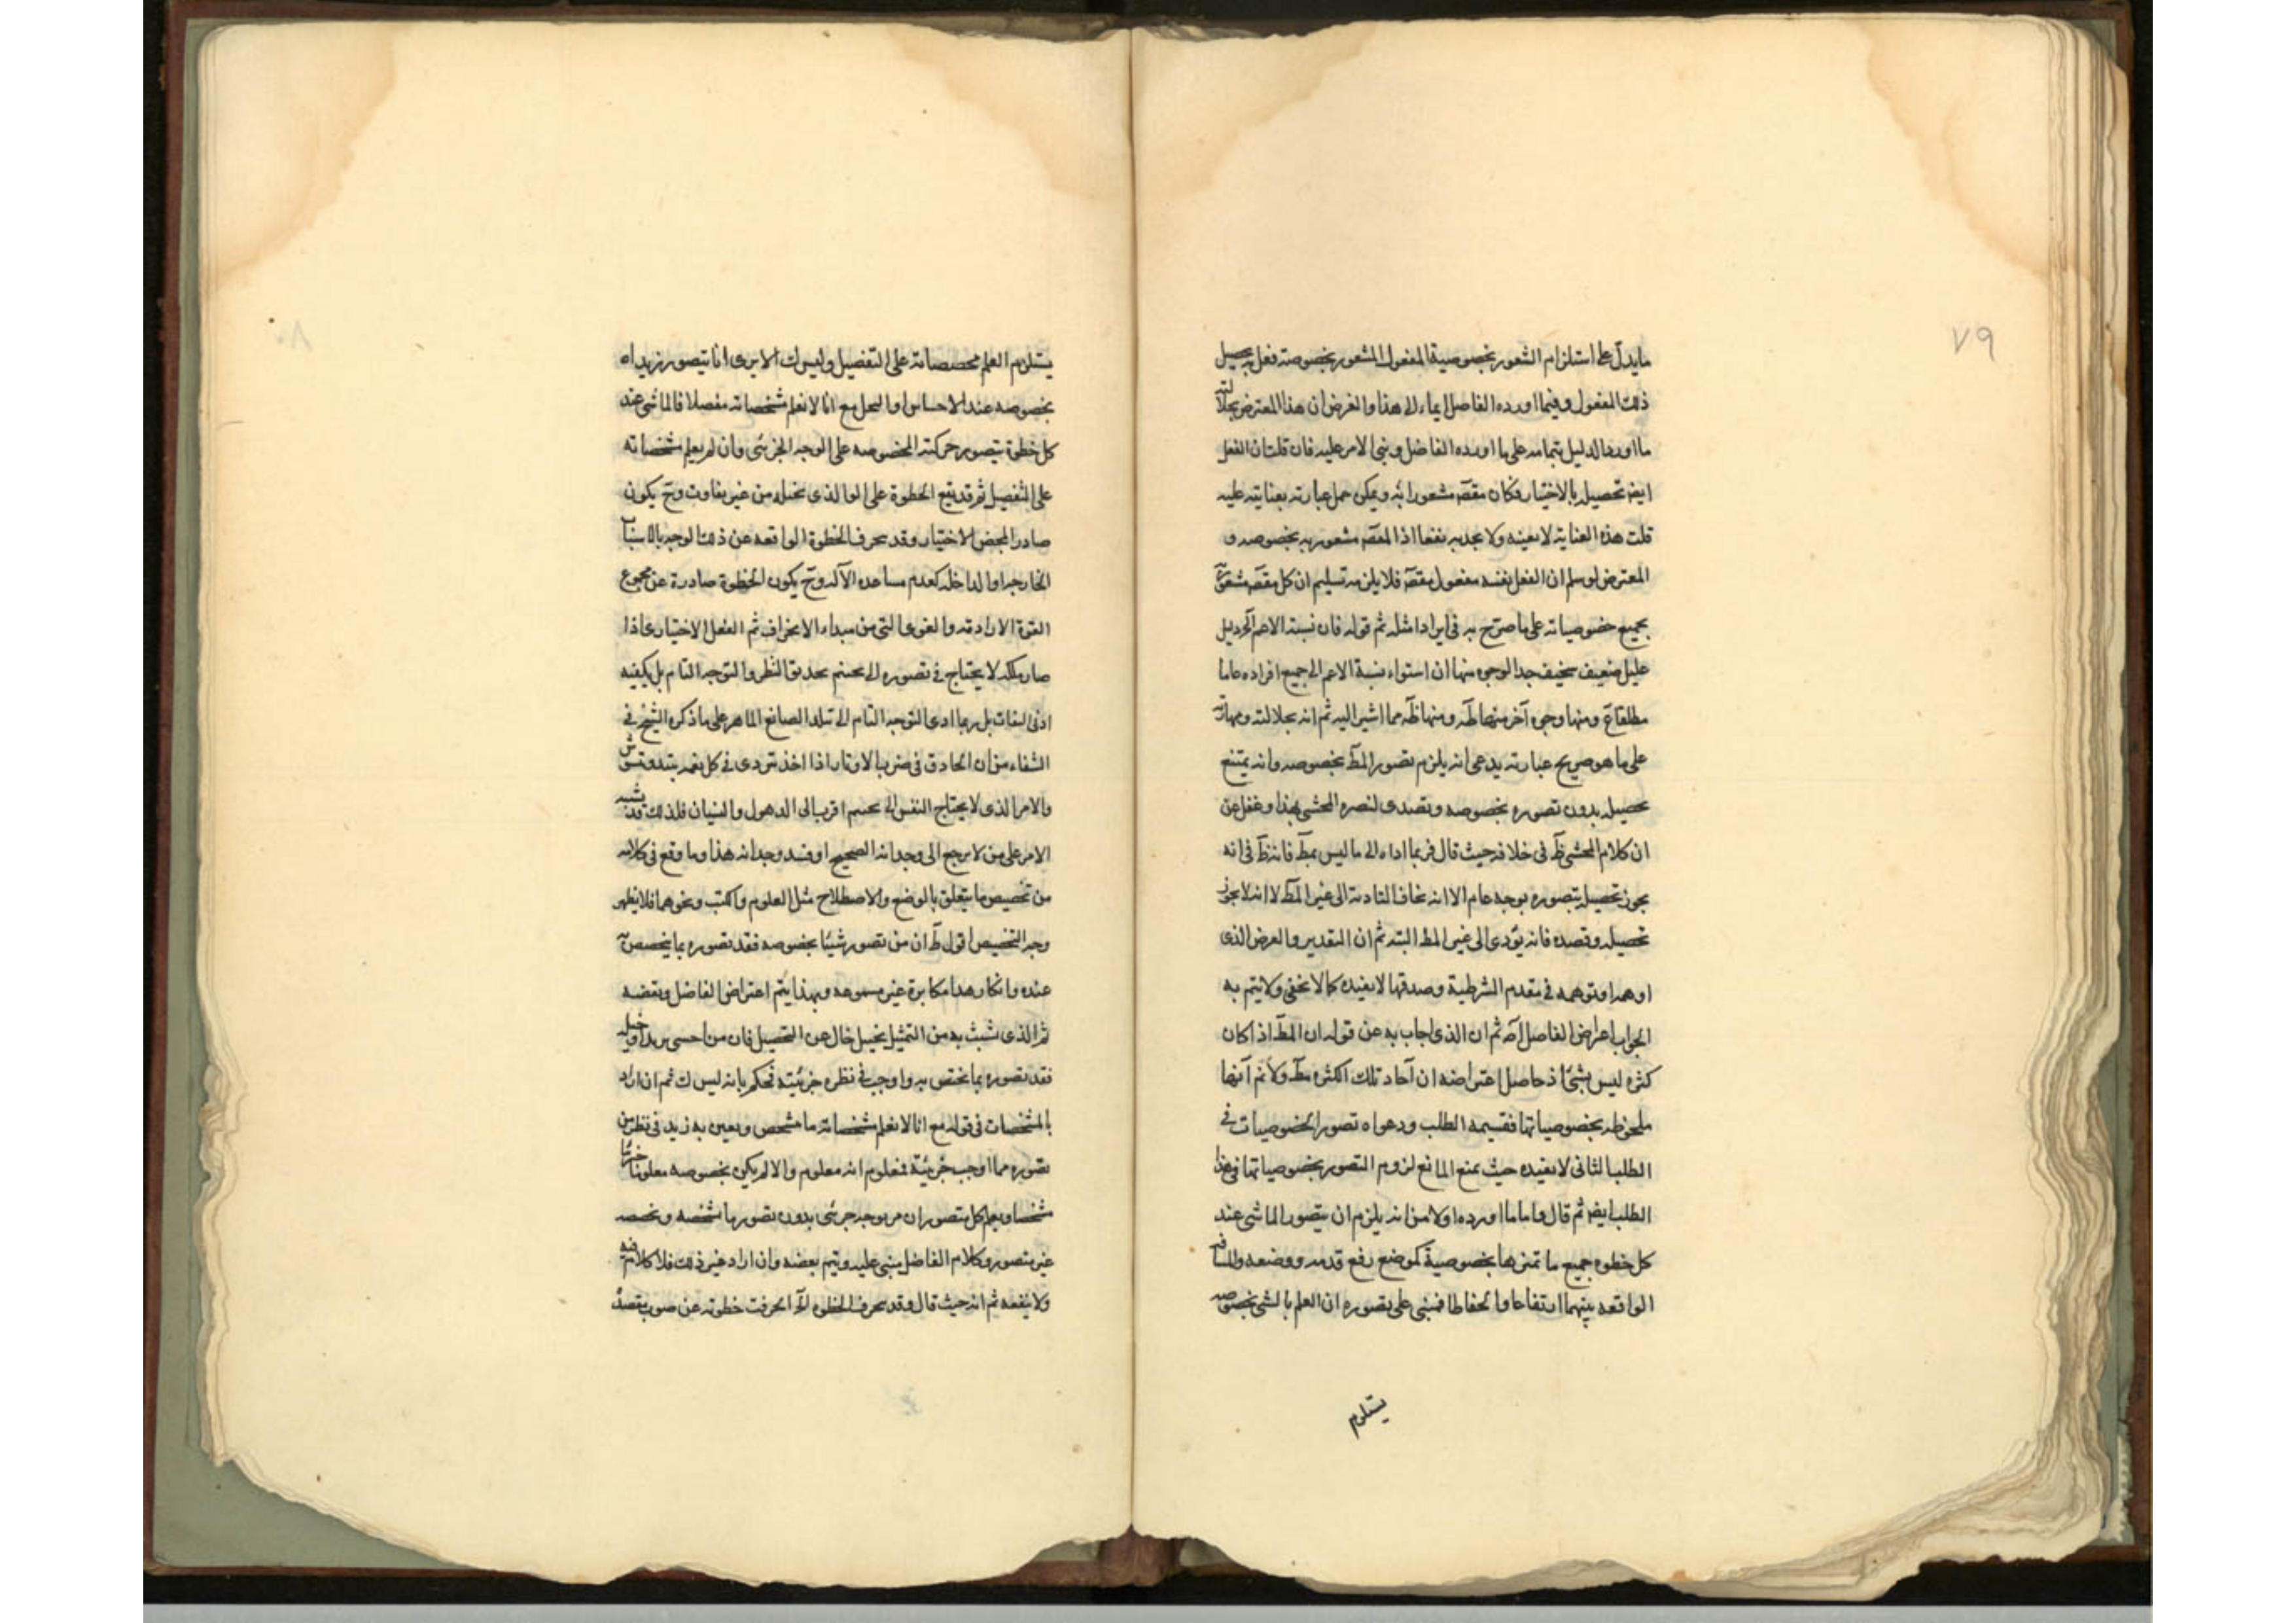 ٧٩
ما يدل على استلزام الشعور بخصوصية المفعول المشعور بخصوصته فعل به يحصيل
ذلك المفعول وفيما اورده الفاضل ايماء الى هذا والغرض ان هذا المعترض بجلالته
ما اورد الدليل بتمامه على ما اورده الفاضل وبنى الامر عليه فان قلت ان الفعل
ايضا تحصيله بالاختيار وكان مقصَ مشعورا به ويمكن حمل عبارته بعنايته عليه
قلت هذه العناية لا يعينه ولا يجديه نفعا اذا المقصَ مشعور به بخصوصه و
المعترض لو سلم ان الفعل نفسه مفعول مقصَ فلا يلزمه تسليم ان كل مقصَ مشعور
بجميع خصوصياته على ما صرّح به في ايراد امثله ثم قوله فان نسبة الاعم آلخ دليل
عليل ضعيف سخيف جدا لوجوه منها ان استواء نسبة الاعم الى جميع افراده عاما
مطلقا مَ ومنها وجوه آخر منها ظَه ومنها ظَه مما اشير اليه ثم انه بجلالته ومهارته
على ما هو صريح عبارته يدعى انه يلزم تصور المطَ بخصوصه وانه يمتنع
تحصيله بدون تصوره بخصوصه وتصدى لنصره المحشى بهذا وغفل عن
ان كلام المحشى ظَ فى خلافه حيث قال فربما اداه الى ما ليس بمطَ فانه ظَ فى انه
يجوز تحصيله بتصوره بوجه عام الا انه يخاف التادية الى غير المطَ لا انه لا يجوز
تحصيله وقصده فانه يؤدى الى غير المط البته ثم ان التقدير والعرض الذى
اوهمه او توهمه فى مقدم الشرطية وصدقها لا يفيده كما لا يخفى ولا يتم به
الجواب اعراض الفاضل آصَه ثم ان الذى اجاب به عن قوله ان المطَ اذا كان
كثره ليس بشئ اذ حاصل اعتراضه ان آحاد تلك الكثره مطَ ولا نم آنها
ملحوظه بخصوصياتها فقسيمه الطلب ودعواه تصور الخصوصيات فى
الطلب الثانى لا يفيده حيث يمنع المانع لزوم التصور بخصوصياتها فى هذا
الطلب ايضا ثم قال واما ما اورده اولا من انه يلزم ان يتصور الماشى عند
كل خطوه جميع ما تميزها بخصوصية كموضع رفع قدمه ووضعه والمسافه
الواقعه بينهما ارتفاعا وانخفاطا فمبنى على تصوره ان العلم بالشئ بخصوصه
يستلزم
٨٠
يستلزم العلم بمخصصاته على التفصيل وليس ك الا يرى انا نتصور زيدا
بخصوصه عند الاحساس او التخيل مع انا لا نعلم مشخصاته مفصلا فالماشى عند
كل خطوة يتصور حركته المخصوصه على الوجه الجزئى وان لم يعلم مشخصاته
على التفصيل ثم قد يقع الخطوة على الوالذى تخيله من غير تفاوت وحَ يكون
صادرا بمحض الاختيار وقد ينحرف الخطوة الواقعه عن ذلك الوجه بالاسباب
الخارجه او الداخله كعدم مساعده الآله وحَ يكون الخطوة صادرة عن مجموع
القوة الاراديه والقوى التى من مبداء الانحراف ثم الفعل الاختيارى اذا
صار ملكه لا يحتاج فى تصوره الى تجشم تحديق النظر والتوجه التام بل يكفيه
ادنى التفات بل ربما ادى التوجه التام الى تبلد الصانع الماهر على ما ذكره الشيخ فى
الشفاء من ان الحاذق فى ضرب الاوتار اذا اخذ تروى فى كل نغمه يتبلد وتشوش
والامر الذى لا يحتاج النفس الى تجشم اقرب الى الذهول والنسيان فلذلك قد يشبه
الامر على من لا يرجع الى وجدانه الصحيح او فسد وجدانه هذا وما وقع فى كلامه
من تخصيص ما يتعلق بالوضع والاصطلاح مثل العلوم والكتب ونحوهما فلا يظهر
وجه التخصيص اقول ظَ ان من تصور شيئا بخصوصه فقد تصوره بما يخصصه
عنده وانكار هذا مكابرة غير مسموعه وبهذا يتم اعتراض الفاضل ونقضه
ثم الذى تشبث به من التمثيل تخييل خال عن التحصيل فان من احس بزيد او تخيله
فقد تصوره بما يختص به واوجب فى نظره جزئيته فحكم بانه ليس ك ثم ان اراد
بالمشخصات فى قوله مع انا لا نعلم مشخصاته ما مشخص وتعين به زيد فى نظر من
تصوره مما اوجب جزئيته فمعلوم انه معلوم والا لم يكن بخصوصه معلوما جزئيا
مشخصا ويعلم كل متصور ان مربوجه جزئى بدون تصور ما شخصه وخصصه
غير متصور وكلام الفاضل يبنى عليه ويتم بعضه وان اراد غير ذلك فلا كلام فيه
ولا ينفعه ثم انه حيث قال وقد ينحرف الخطوه آلخ انحرفت خطوته عن صوب مقصده